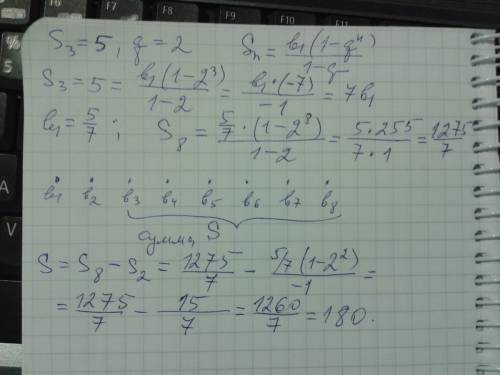 F7 F8 F9 F10 F11
%
5
A
V
S₃ = 5, q = 2 Sₙ = b₁(1-qⁿ)/1-q
S₃ = 5 = b₁(1-2³)/1-2 = b₁·(-7)/-1 = 7b₁
b₁ = 5/7; S₈ = 5/7·(1-2⁸)/1-2 = 5·255/7·1 = 1275/7
b₁ b₂ b₃ b₄ b₅ b₆ b₇ b₈
сумма S
S = S₈ - S₂ = 1275/7 - 5/7(1-2²)/-1 =
= 1275/7 - 15/7 = 1260/7 = 180.